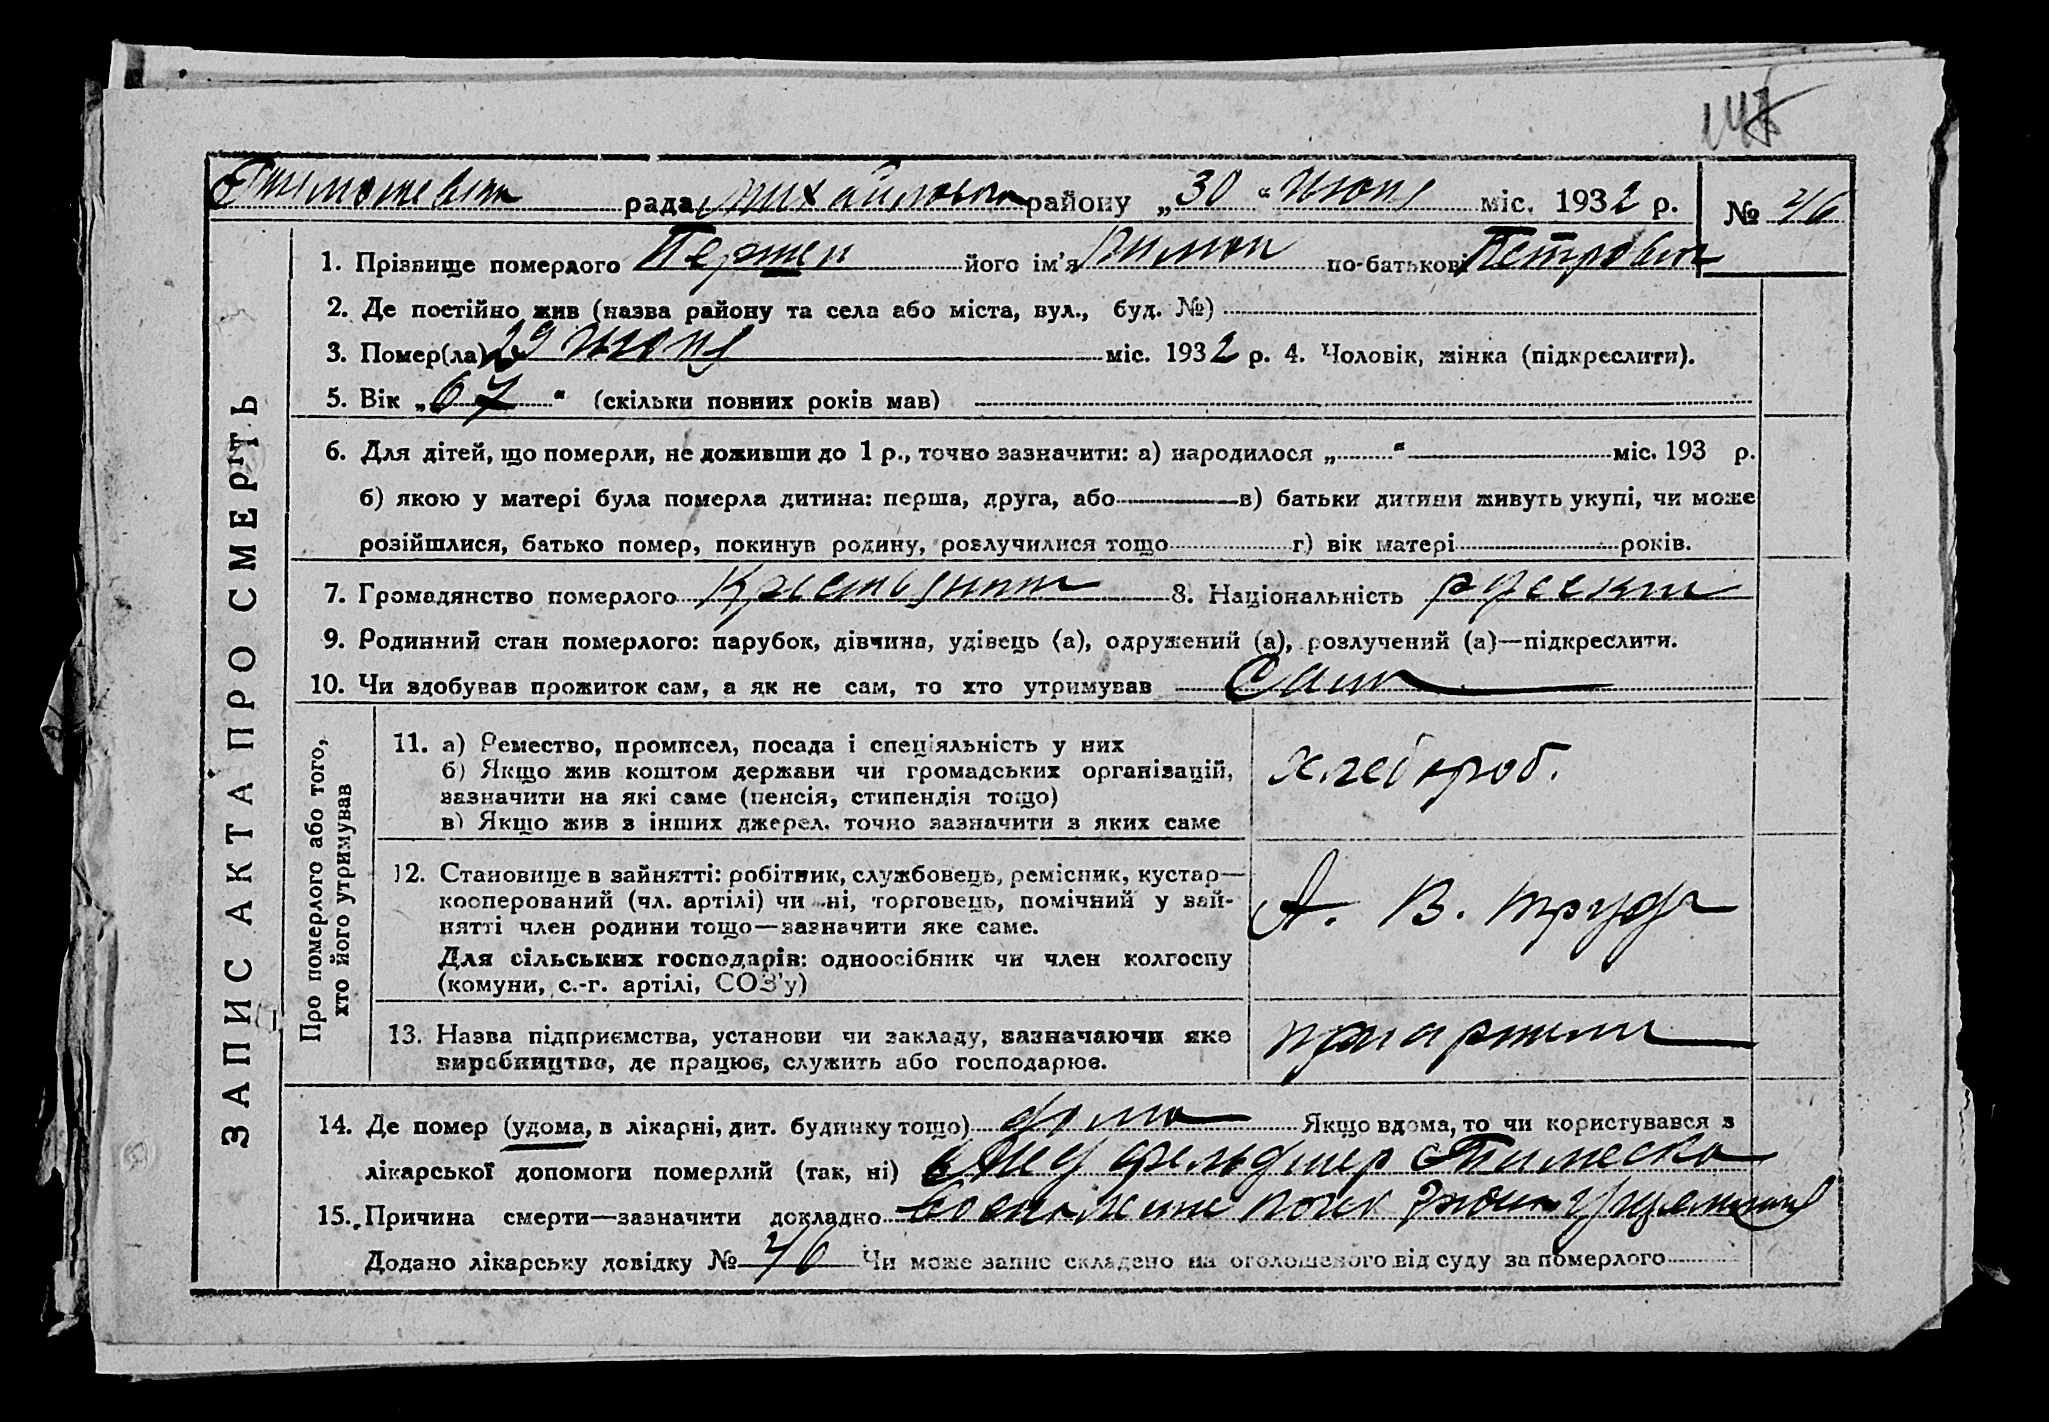 рада район у „30 “ июня міс. 1932 р. № 46
1. Прізвище померлого його ім’я по-батькові Петрович
2. Де постійно жив (назва району та села або міста, вул., буд. №)
3. Помер(ла) 29 июня міс. 1932 р. 4. Чоловік, жінка (підкреслити).
5. Вік „67“ (скільки повних років мав)
6. Для дітей, що померли, не доживши до 1 р., точно зазначити: а) народилося „ “ міс. 193 р.
б) якою у матері була померла дитина: перша, друга, або в) батьки дитини живуть укупі, чи може
розійшлися, батько помер, покинув родину, розлучилися тощо г) вік матері років.
7. Громадянство померлого 8. Національність
9. Родинний стан померлого: парубок, дівчина, удівець (а), одружений (а), розлучений (а)—підкреслити.
10. Чи здобував прожиток сам, а як не сам, то хто утримував Сам
ЗАПИС АКТА ПРО СМЕРТЬ
Про померлого або того,
хто його утримував
11. а) Ремество, промисел, посада і спеціяльність у них
б) Якщо жив коштом держави чи громадських організацій,
зазначити на які саме (пенсія, стипендія тощо)
в) Якщо жив з інших джерел, точно зазначити з яких саме
хлебороб.
12. Становище в зайнятті: робітник, службовець, ремісник, кустар—
кооперований (чл. артілі) чи ні, торговець, помічний у зай-
нятті член родини тощо—зазначити яке саме.
Для сільських господарів: одноосібник чи член колгоспу
(комуни, с.-г. артілі, СОЗ’у)
А. В. труда
13. Назва підприємства, установи чи закладу, зазначаючи яке
виробництво, де працює, служить або господарює.
14. Де помер (удома, в лікарні, дит. будинку тощо) дома Якщо вдома, то чи користувався з
лікарської допомоги померлий (так, ні) фельдшер
15. Причина смерти—зазначити докладно
Додано лікарську довідку № 46 Чи може запис складено на оголошеного від суду за померлого